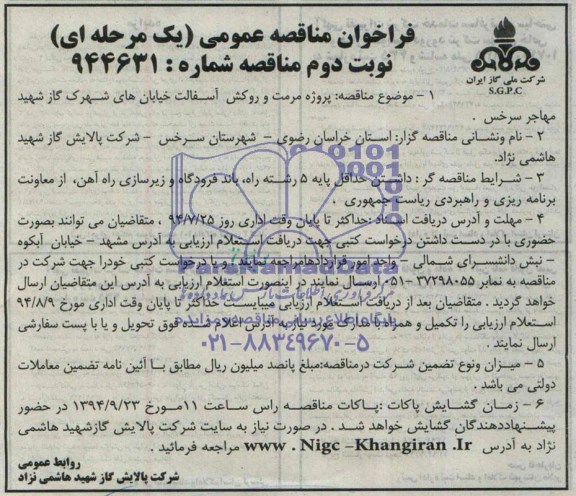 فراخوان مناقصه عمومی (یک مرحله ای)
نوبت دوم مناقصه شماره : ۹۴۴۶۳۱
شرکت ملی گاز ایران
S.G.P.C
۱ – موضوع مناقصه: پروژه مرمت و روکش آسفالت خیابان های شهرک گاز شهید
مهاجر سرخس .
۲ – نام ونشانی مناقصه گزار: استان خراسان رضوی – شهرستان سرخس – شرکت پالایش گاز شهید
هاشمی نژاد.
۳ – شرایط مناقصه گر : داشتن حداقل پایه ۵ رشته راه، باند فرودگاه و زیرسازی راه آهن، از معاونت
برنامه ریزی و راهبردی ریاست جمهوری .
۴ – مهلت و آدرس دریافت اسناد :حداکثر تا پایان وقت اداری روز ۹۴/۷/۲۵ ، متقاضیان می توانند بصورت
حضوری با در دست داشتن درخواست کتبی جهت دریافت استعلام ارزیابی به آدرس مشهد – خیابان آبکوه
– نبش دانشسرای شمالی – واحد امور قراردادهامراجعه نمایند . و یا درخواست کتبی خودرا جهت شرکت در
مناقصه به نمابر ۳۷۲۹۸۰۵۵ –۰۵۱ ارسال نمایند در اینصورت استعلام ارزیابی به آدرس این متقاضیان ارسال
خواهد گردید . متقاضیان بعد از دریافت استعلام ارزیابی میبایست حداکثر تا پایان وقت اداری مورخ ۹۴/۸/۹
استعلام ارزیابی را تکمیل و همراه با مدارک مورد نیاز به آدرس اعلام شده فوق تحویل و یا با پست سفارشی
ارسال نمایند .
۵ – میزان ونوع تضمین شرکت درمناقصه:مبلغ پانصد میلیون ریال مطابق با آئین نامه تضمین معاملات
دولتی می باشد .
۶ – زمان گشایش پاکات :پاکات مناقصه راس ساعت ۱۱مورخ ۱۳۹۴/۹/۲۳ در حضور
پیشنهاددهندگان گشایش خواهد شد . در صورت نیاز به سایت شرکت پالایش گازشهید هاشمی
نژاد به آدرس www . Nigc –Khangiran .Ir مراجعه فرمائید .
روابط عمومی
شرکت پالایش گاز شهید هاشمی نژاد
ParsNamadData
پایگاه اطلاع رسانی مناقصه و مزایده
۰۲۱-۸۸۳۴۹۶۷۰-۵